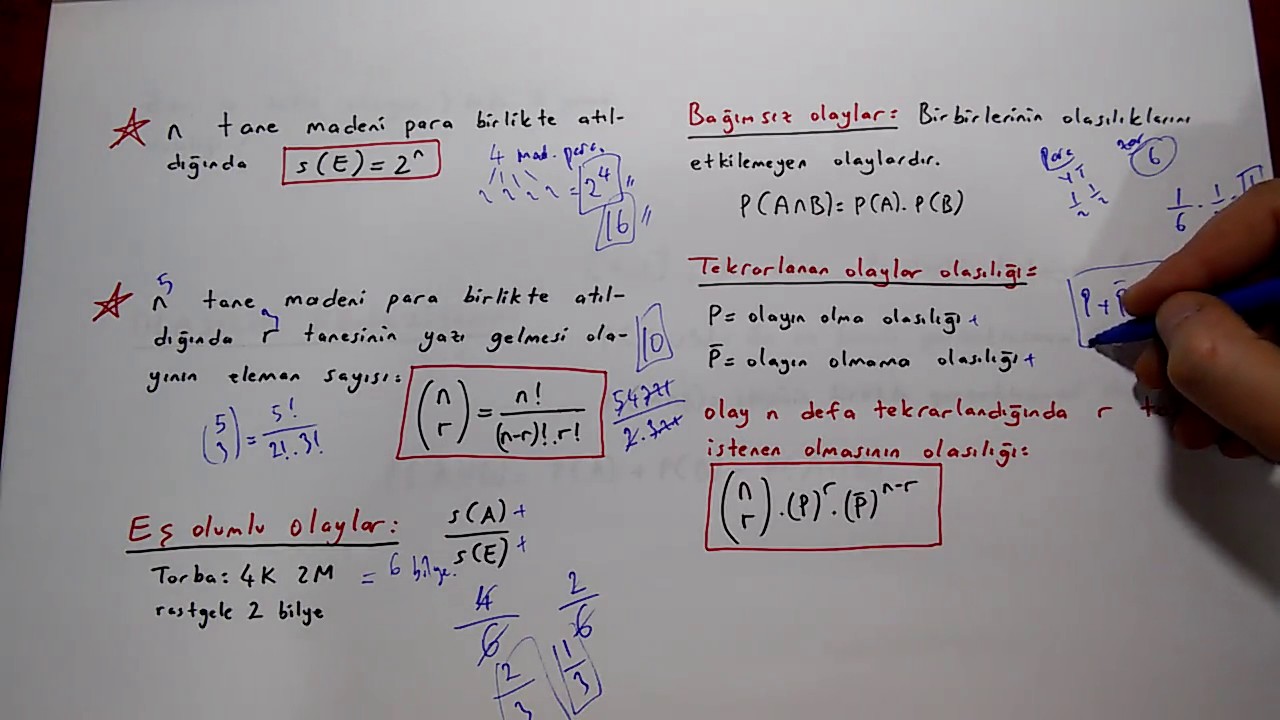 n tane madeni para birlikte atıl-
dığında s(E) = 2ⁿ
4 mad. para
2 2 2 2 = 2⁴ "
16 "
5
n tane madeni para birlikte atıl-
dığında r tanesinin yazı gelmesi ola-
yının eleman sayısı:
(n r) = n! / (n-r)! . r!
10
(5 3) = 5! / 2! . 3!
Eş olumlu olaylar: s(A) + / s(E) +
Torba: 4K 2M = 6 bilye.
rastgele 2 bilye
4/6 2/6
2/3 1/3
Bağımsız olaylar: Birbirlerinin olasılıklarını
etkilemeyen olaylardır.
para zar 6
Y T
1/2 1/2
1/6 . 1
P(A∩B) = P(A). P(B)
Tekrarlanan olaylar olasılığı:
P = olayın olma olasılığı +
P̄ = olayın olmama olasılığı +
P + P̄
olay n defa tekrarlandığında r
istenen olmasının olasılığı:
(n r) . (P)ʳ . (P̄)ⁿ⁻ʳ